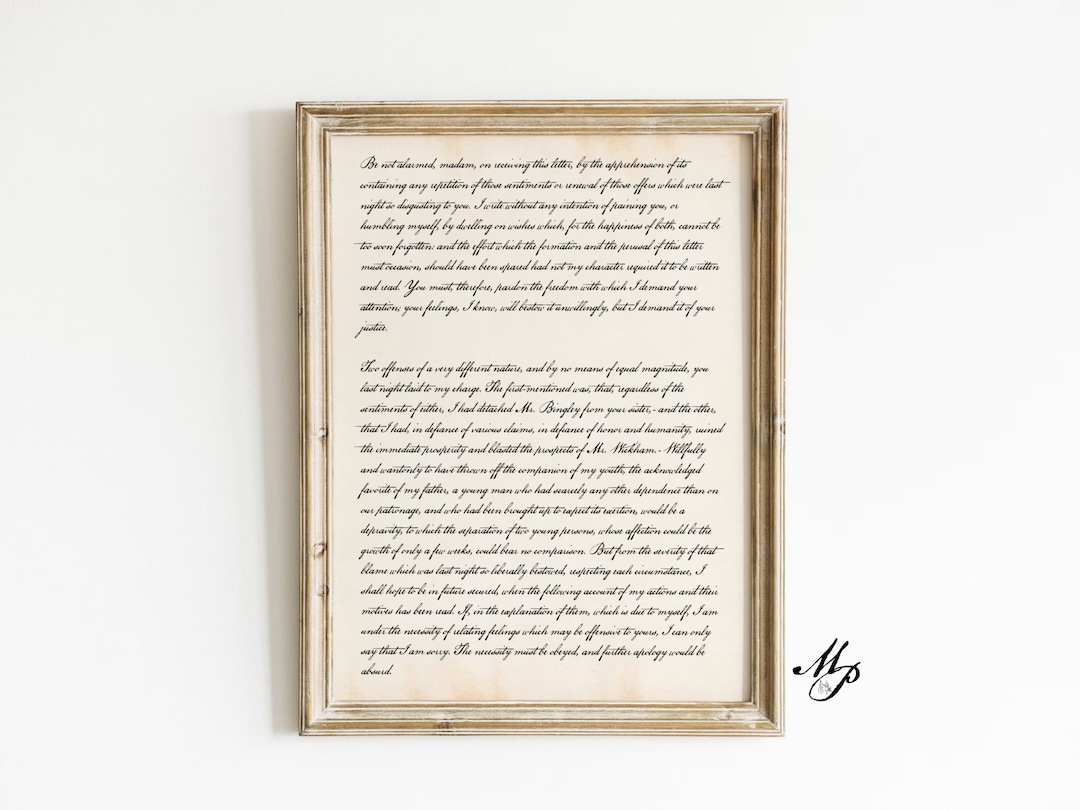 Be not alarmed, madam, on receiving this letter, by the apprehension of its
containing any repetition of those sentiments or renewal of those offers which were last
night so disgusting to you. I write without any intention of paining you, or
humbling myself, by dwelling on wishes which, for the happiness of both, cannot be
too soon forgotten: and the effort which the formation and the perusal of this letter
must occasion, should have been spared had not my character required it to be written
and read. You must, therefore, pardon the freedom with which I demand your
attention; your feelings, I know, will bestow it unwillingly, but I demand it of your
justice.
Two offenses of a very different nature, and by no means of equal magnitude, you
last night laid to my charge. The first mentioned was, that, regardless of the
sentiments of either, I had detached Mr. Bingley from your sister,- and the other,
that I had, in defiance of various claims, in defiance of honor and humanity, ruined
the immediate prosperity and blasted the prospects of Mr. Wickham.- Willfully
and wantonly to have thrown off the companion of my youth, the acknowledged
favorite of my father, a young man who had scarcely any other dependence than on
our patronage, and who had been brought up to expect its exertion, would be a
depravity, to which the separation of two young persons, whose affection could be the
growth of only a few weeks, could bear no comparison. But from the severity of that
blame which was last night so liberally bestowed, respecting each circumstance, I
shall hope to be in future secured, when the following account of my actions and their
motives has been read. If, in the explanation of them, which is due to myself, I am
under the necessity of relating feelings which may be offensive to yours, I can only
say that I am sorry. The necessity must be obeyed, and further apology would be
absurd.
MP